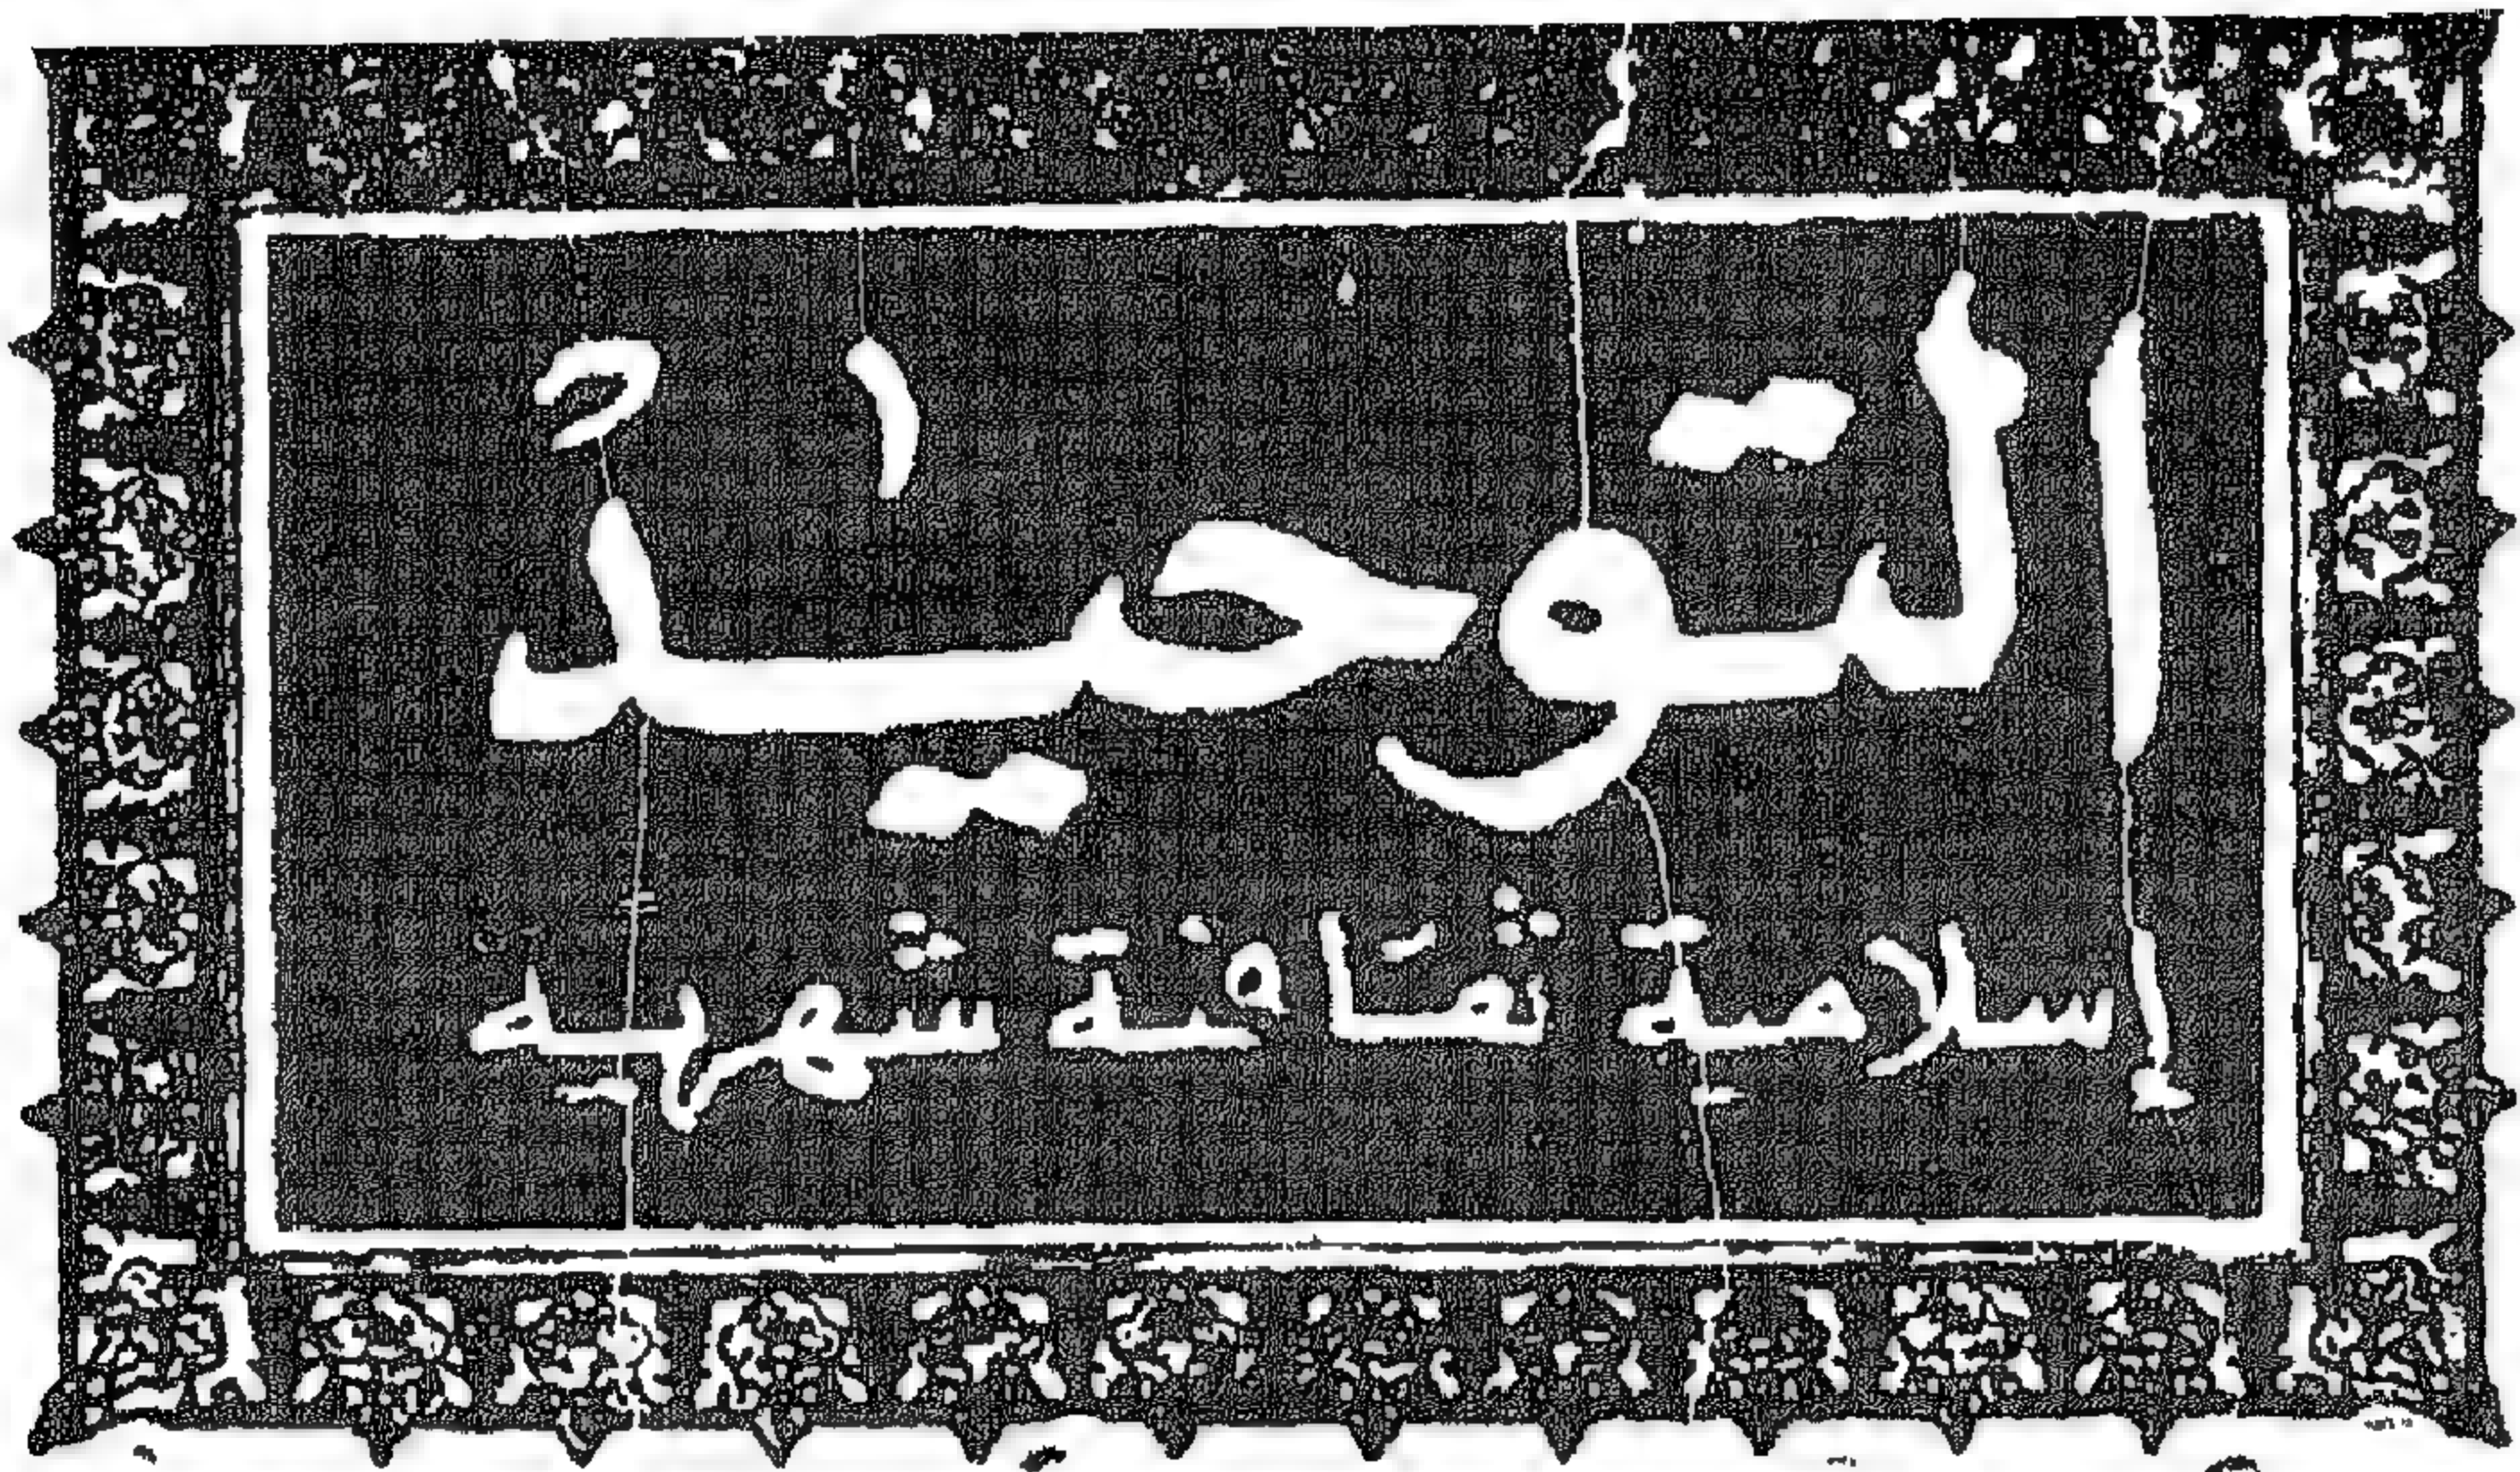 التوحيد
اسلامية ثقافية شهرية